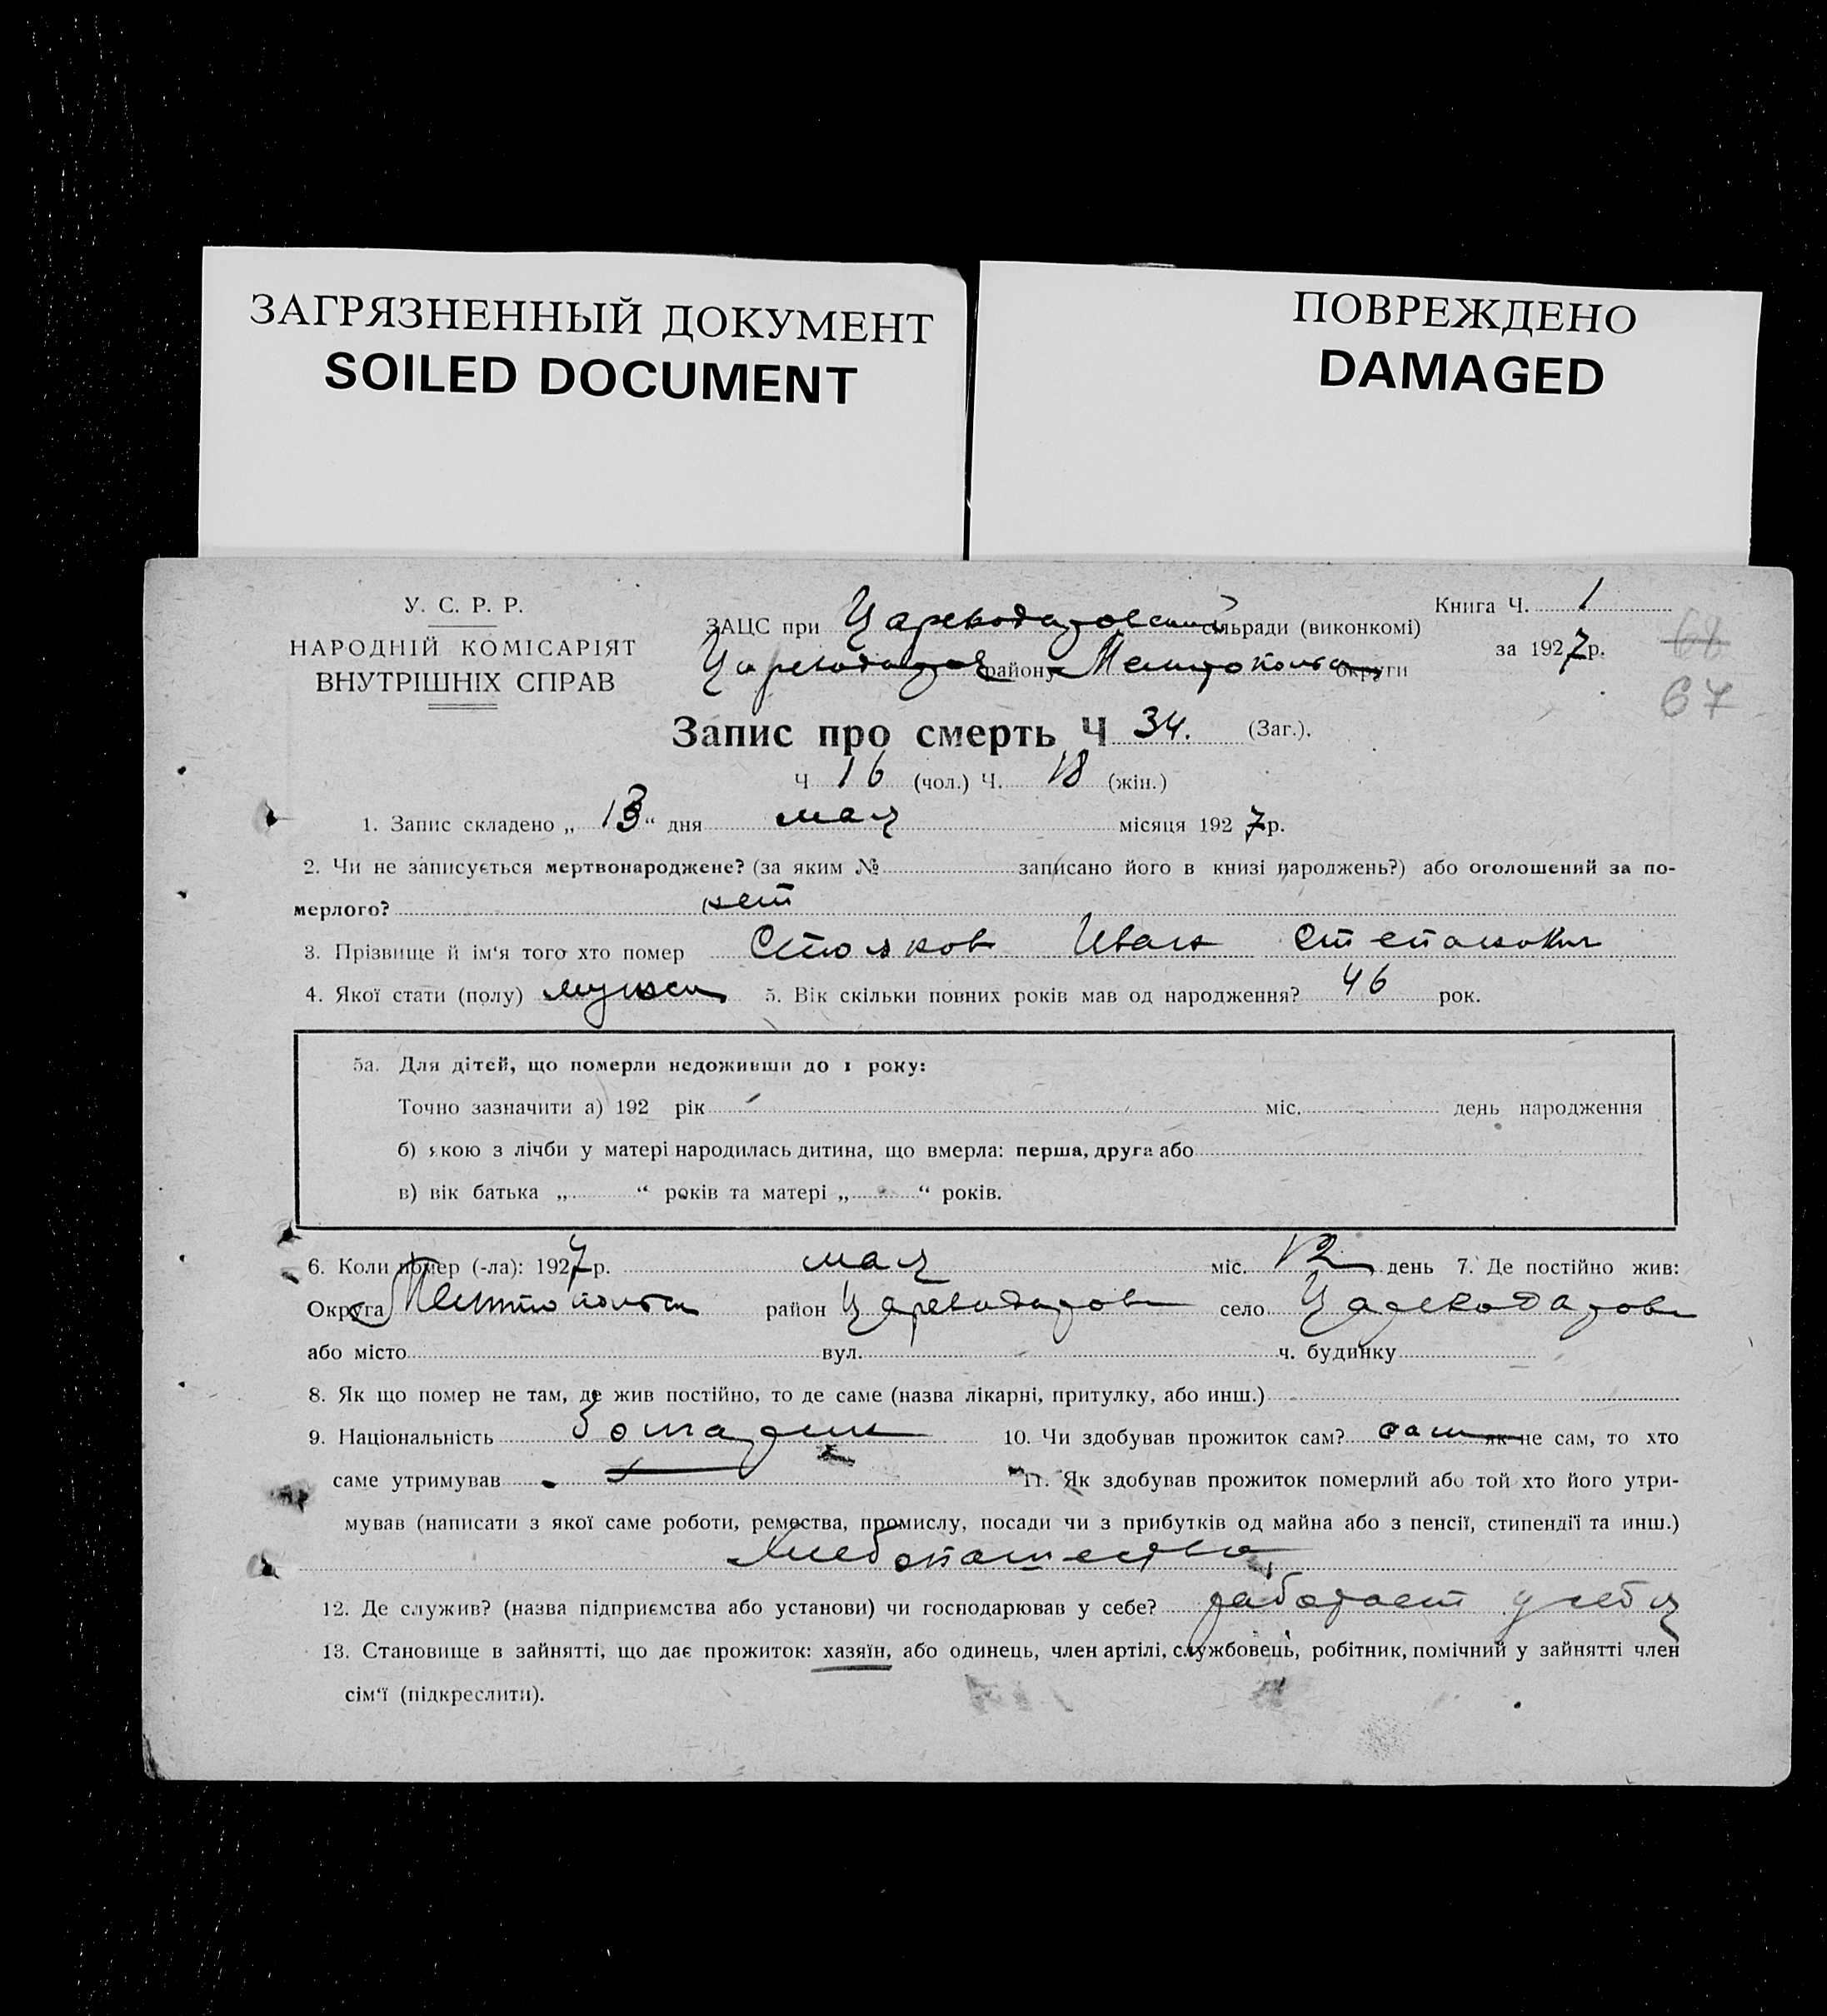 ЗАГРЯЗНЕННЫЙ ДОКУМЕНТ
SOILED DOCUMENT
ПОВРЕЖДЕНО
DAMAGED
У. С. Р. Р.
НАРОДНІЙ КОМІСАРІЯТ
ВНУТРІШНІХ СПРАВ
ЗАЦС при Царекодаровский сільради (виконкомі)
району округи
Книга Ч. 1
за 1927 р.
68
67
Запис про смерть Ч 34. (Заг.).
Ч 16 (чол.) Ч. 18 (жін.)
1. Запис складено „ 13 “ дня мая місяця 1927 р.
2. Чи не записується мертвонароджене? (за яким № записано його в книзі народжень?) або оголошений за по-
мерлого? нет
3. Прізвище й ім‘я того хто помер Стояков Иван Степанович
4. Якої стати (полу) мужск 5. Вік скільки повних років мав од народження? 46 рок.
5а. Для дітей, що померли недоживши до 1 року:
Точно зазначити а) 192 рік міс. день народження
б) якою з лічби у матері народилась дитина, що вмерла: перша, друга або
в) вік батька „ “ років та матері „ “ років.
6. Коли помер (-ла): 1927 р. мая міс. 12 день 7. Де постійно жив:
Округа район село
або місто вул. ч. будинку
8. Як що помер не там, де жив постійно, то де саме (назва лікарні, притулку, або инш.)
9. Національність Болгарин 10. Чи здобував прожиток сам? сам як не сам, то хто
саме утримував 11. Як здобував прожиток померлий або той хто його утри-
мував (написати з якої саме роботи, ремества, промислу, посади чи з прибутків од майна або з пенсії, стипендії та инш.)
Хлебопашество
12. Де служив? (назва підприємства або установи) чи господарював у себе? работает у себя
13. Становище в зайнятті, що дає прожиток: хазяїн, або одинець, член артілі, службовець, робітник, помічний у зайнятті член
сім‘ї (підкреслити).